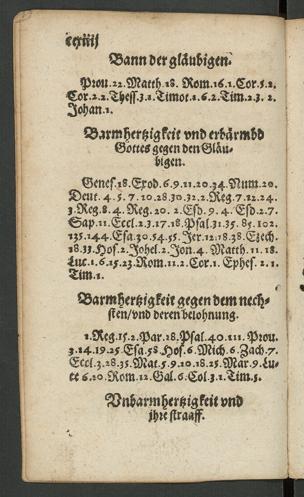 ccxiiij
Bann der gläubigen.
Prou.22. Matth.18. Rom.16.1.Cor.5.2.
Cor.2.2. Thess.3.1. Timot.1.6.2. Tim.2.3.2.
Johan.1.
Barmhertzigkeit vnd erbärmbd
Gottes gegen den Gläu-
bigen.
Genes.18. Exod.6.9.11.20.34. Num.20.
Deut.4.5.7.10.28.30.32.2. Reg.7.12.24.
3.Reg.8.4. Reg.20.2. Esd.9.4. Esd.2.7.
Sap.11. Eccl.2.3.17.18. Psal.31.35.85.102.
135.144. Esa.30.54.55. Jer.12.18.38. Ezech.
18.33. Hos.2. Johel.2. Jon.4. Matth.11.18.
Luc.1.6.15.23. Rom.11.2. Cor.1. Ephes.2.1.
Tim.1.
Barmhertzigkeit gegen dem nech-
sten/vnd deren belohnung.
1.Reg.15.2. Par.28. Psal.40.111. Prou.
3.14.19.25. Esa.58. Hos.6. Mich.6. Zach.7.
Eccl.3.28.35. Mat.5.9.10.18.25. Mar.9. Lu-
ce 6.20. Rom.12. Gal.6. Col.3.1. Tim.5.
Vnbarmhertzigkeit vnd
jhre straaff.